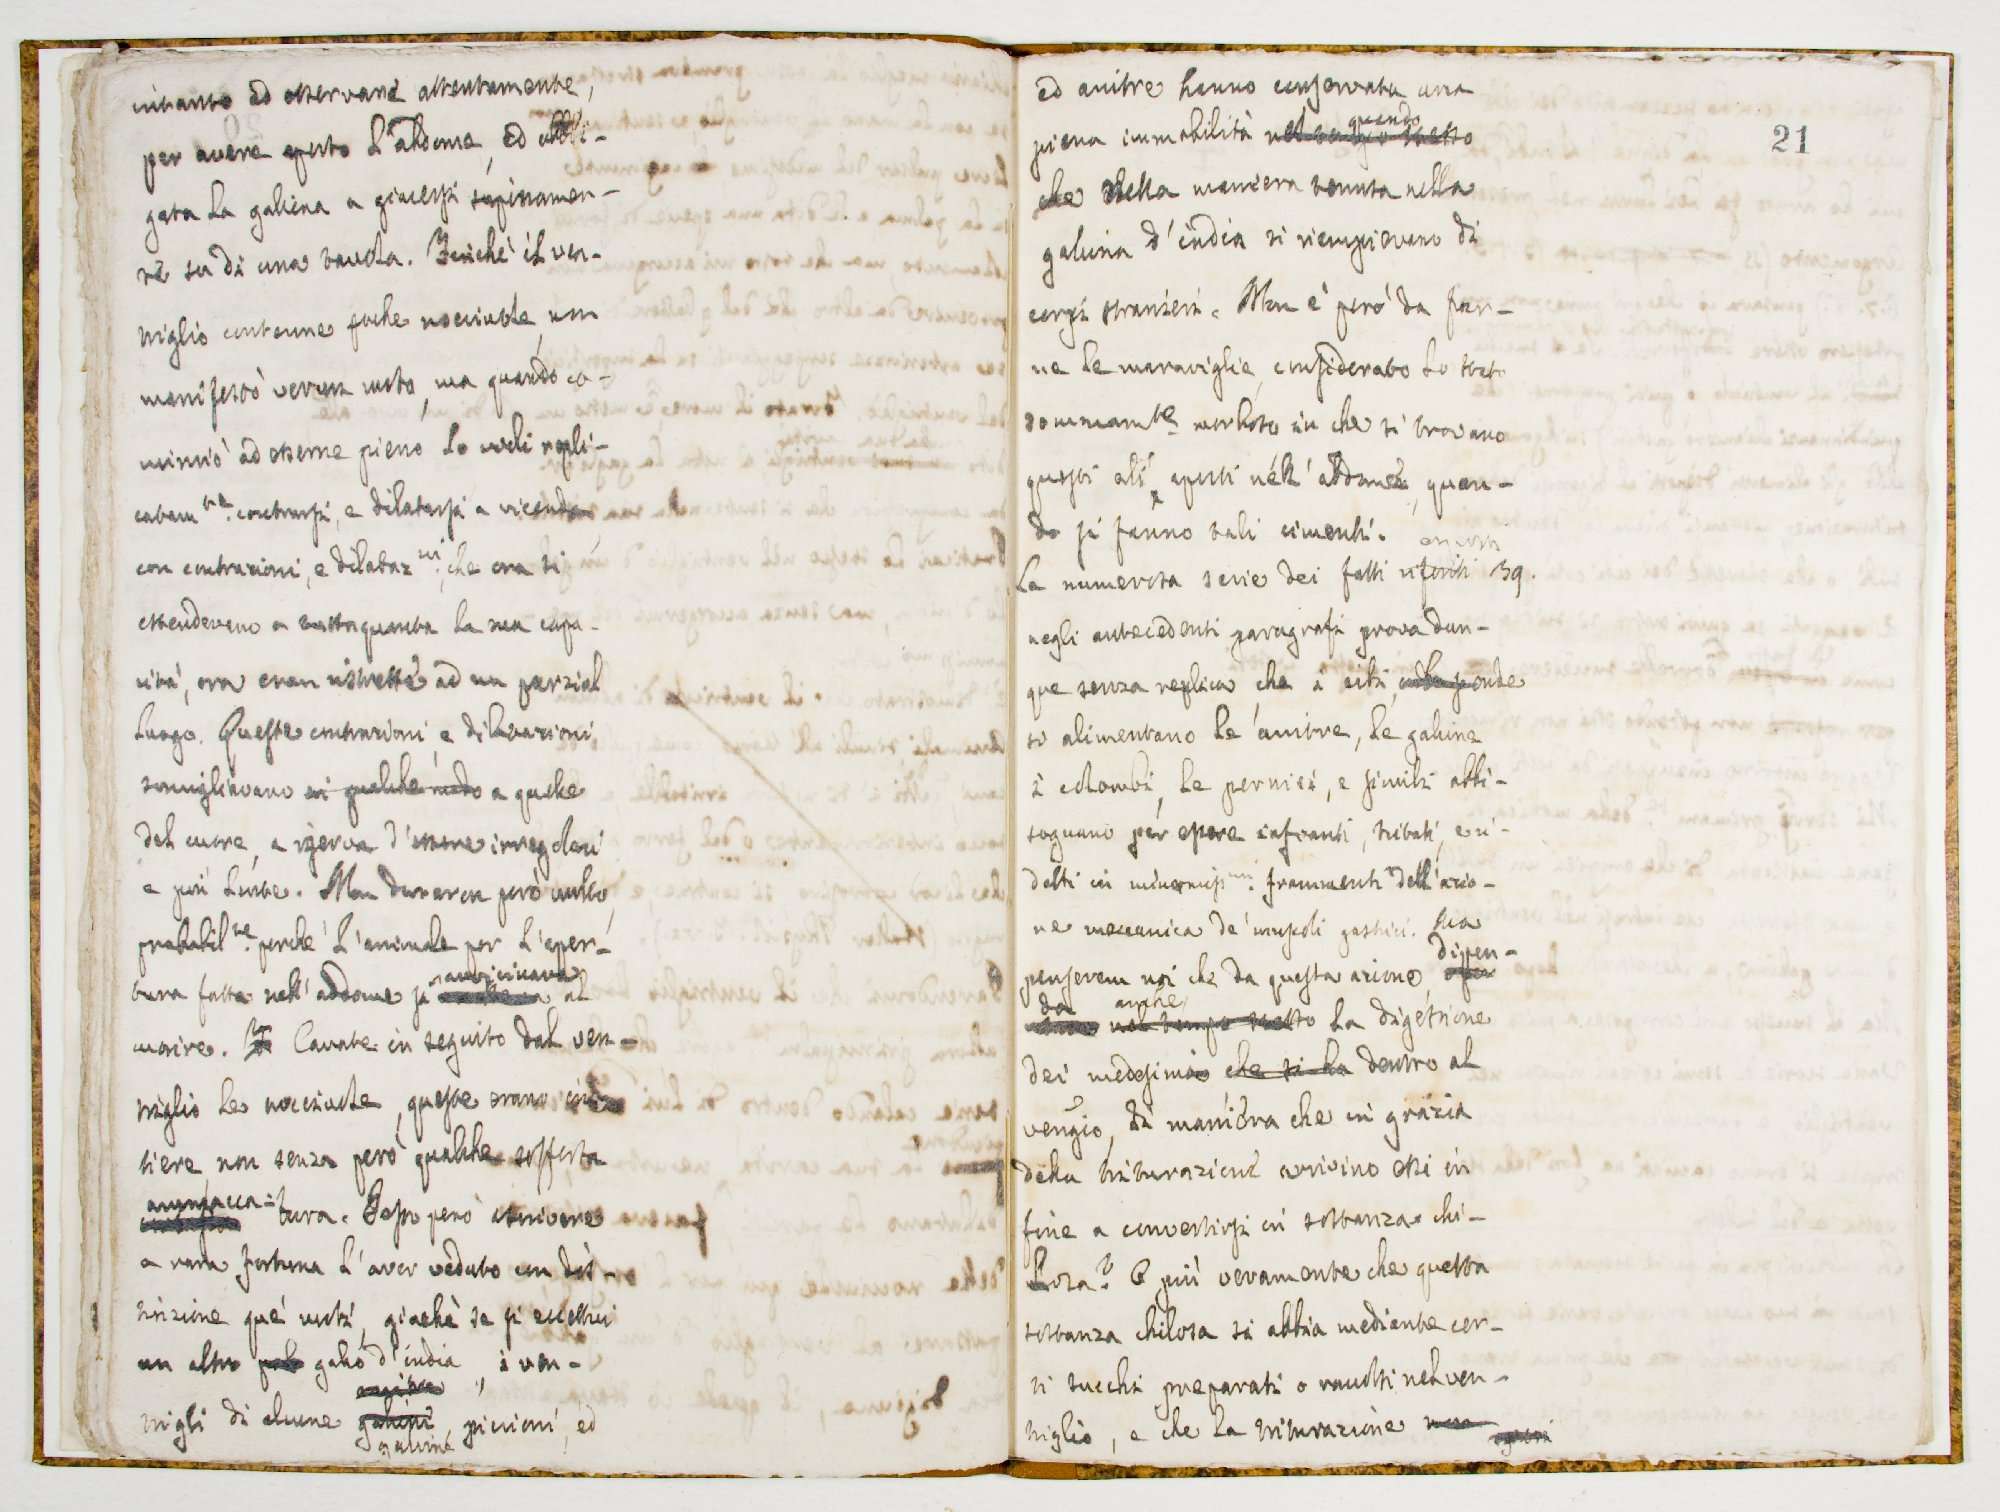 intanto ad osservare attentamente,
per avere aperto l'abdome, ed obbli-
gata la galina a giacersi supinamen-
te su di una tavola. Finchè il ven-
triglio contenne poche nocciuole, non
manifestò verun moto, ma quando co-
minciò ad esserne pieno lo vedi repli-
catam.te contrarsi, e dilatarsi a vicenda,
con contrazioni, e dilataz.ni, che ora si
estendevano a tuttaquanta la sua capa-
cità, ora eran ristrette ad un parzial
luogo. Queste contrazioni, e dilatazioni
somigliavano in qualche modo a quelle
del cuore, a riserva d'essere irregolari
e più lente. Non duraron però molto,
probabil.te perchè l'animale per l'aper-
tura fatta nell'addome si avvicinava al
morire. Cavate in seguito dal ven-
triglio le nocciuole, queste erano in-
tiere non senza però qualche sofferta
ammacca-
tura. Posso però ascrivere
a rara fortuna l'aver veduto con dis-
tinzione que' moti, giachè se si eccettui
un altro gallo d'india, i ven-
trigli di alcune galline piccioni, ed
21
ed anitre hanno conservata una
piena immobilità nel tempo stesso quando
che nella maniera tenuta nella
galina d'india si riempievano di
corpi stranieri. Non è però da far-
ne le maraviglie, considerato lo stato
sommam.te morboso in che si trovano
questi ali aperti nell'addome, quan-
do si fanno tali cimenti.
La numerosa serie dei fatti riferiti 39.
negli antecedenti paragrafi prova dun-
que senza replica, che i cibi, onde
si alimentano le anitre, le galine
i colombi, le pernici, e simili abbi-
sognano per essere infranti, tritati, e ri-
dotti in minutiss.mi frammenti dell'azio-
ne meccanica de' muscoli gastrici. Ma
penserem noi che da questa azione dipen-
da anche nel tempo stesso la digestione
dei medesimi che si fa dentro al
vengio, di maniera che in grazia
della triturazione arrivino essi in
fine a convertirsi in sostanza chi-
losa? O più veramente che questa
sostanza chilosa si abbia mediante cer-
ti succhi preparati o raccolti nel ven-
triglio, e che la triturazione non